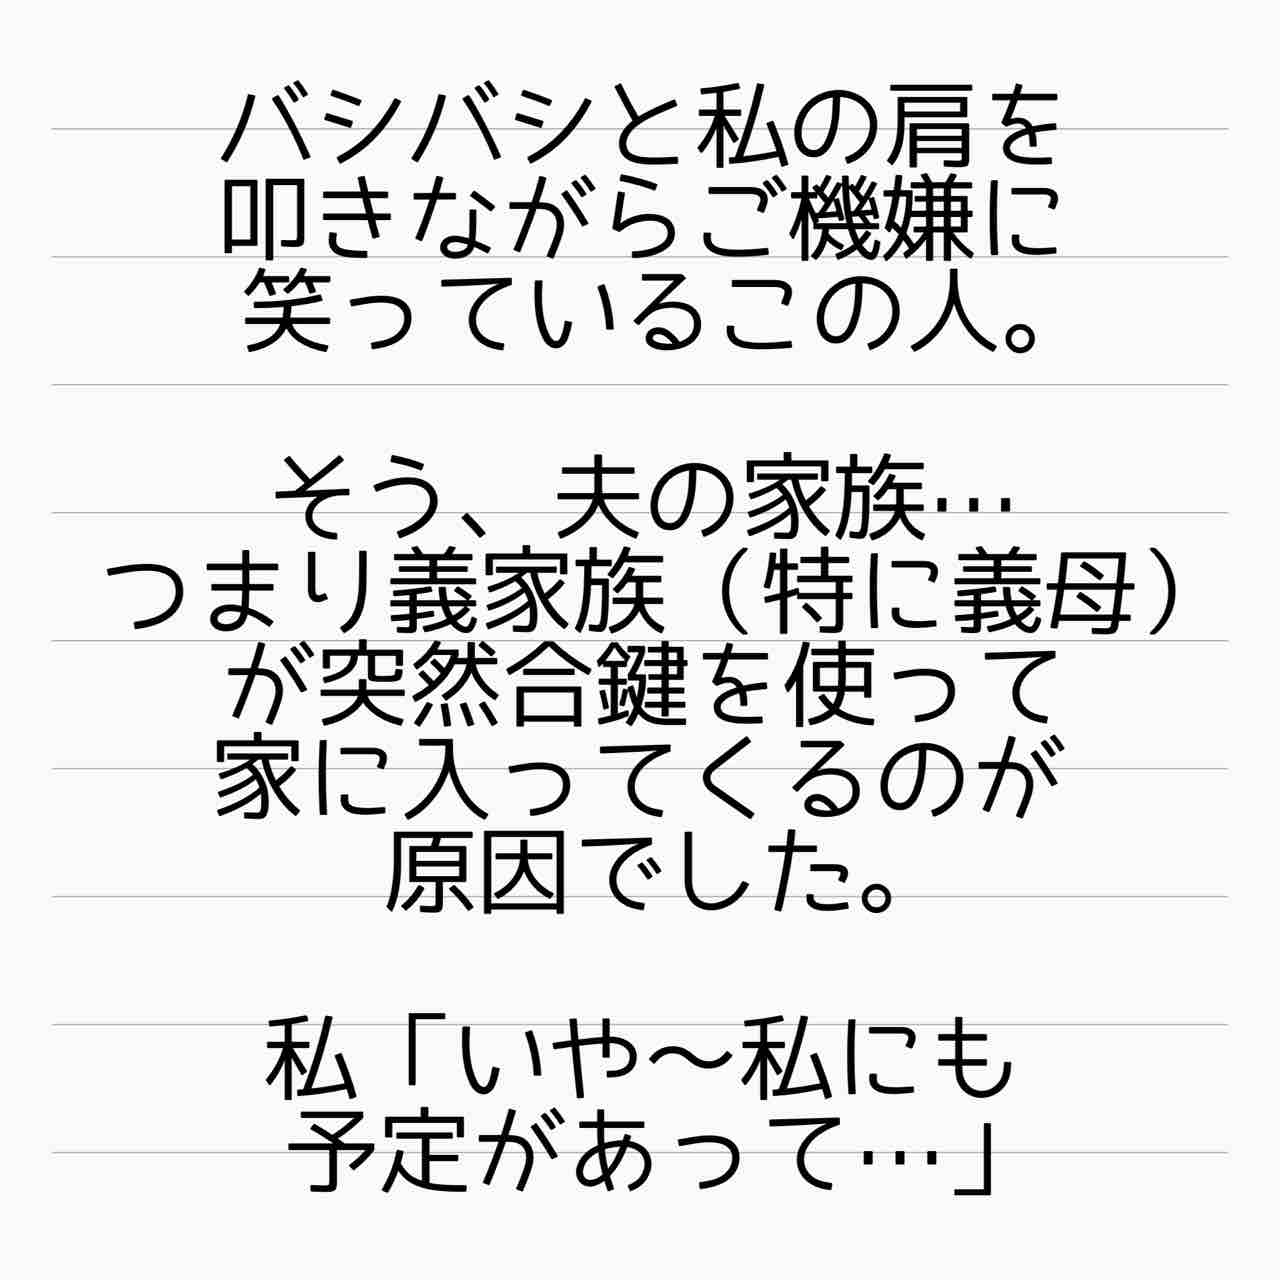 バシバシと私の肩を
叩きながらご機嫌に
笑っているこの人。
そう、夫の家族…
つまり義家族（特に義母）
が突然合鍵を使って
家に入ってくるのが
原因でした。
私「いや〜私にも
予定があって…」